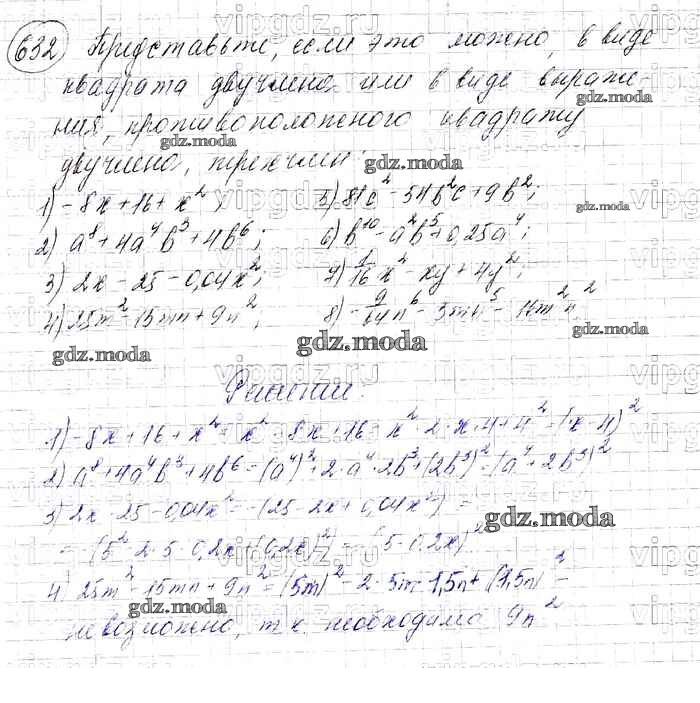 632 Представьте, если это можно, в виде
квадрата двучлена или в виде выраже-
ния, противоположного квадрату
двучлена, трехчлен:
1) -8x+16+x²;
5) 81c²-54b²c+9b²;
2) a⁸+4a⁴b³+4b⁶;
6) b¹⁰-a²b⁵+0,25a⁴;
3) 2x-25-0,04x²;
7) 1/16 x²-xy+4y²;
4) 25m²-15mn+9n²;
8) -9/64 n⁶-3mn⁵-16m²n²
Решение.
1) -8x+16+x²=x²-8x+16=x²-2·x·4+4²=(x-4)²
2) a⁸+4a⁴b³+4b⁶=(a⁴)²+2·a⁴·2b³+(2b³)²=(a⁴+2b³)²
3) 2x-25-0,04x²=-(25-2x+0,04x²)=
=-(5²-2·5·0,2x+(0,2x)²)=-(5-0,2x)²
4) 25m²-15mn+9n²=(5m)²-2·5m·1,5n+(1,5n)²-
невозможно, т.к. необходимо 9n²
gdz.moda
gdz.moda
gdz.moda
gdz.moda
gdz.moda
gdz.moda
gdz.moda
gdz.moda
gdz.moda
gdz.moda
vipgdz.ru